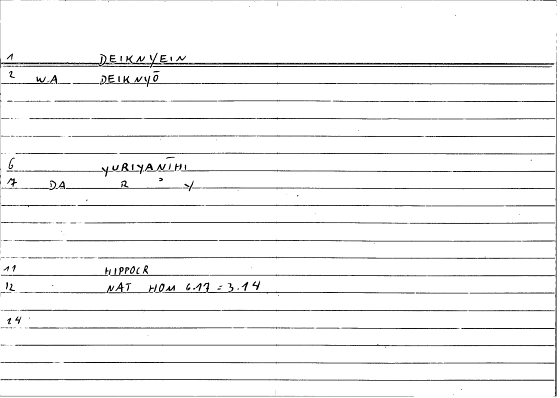 1 DEIKNYEIN
2 WA DEIKNYŌ
6 YURIYANĪHI
7 DA R ' Y
11 HIPPOCR
12 NAT HOM 6.17 = 3.14
14